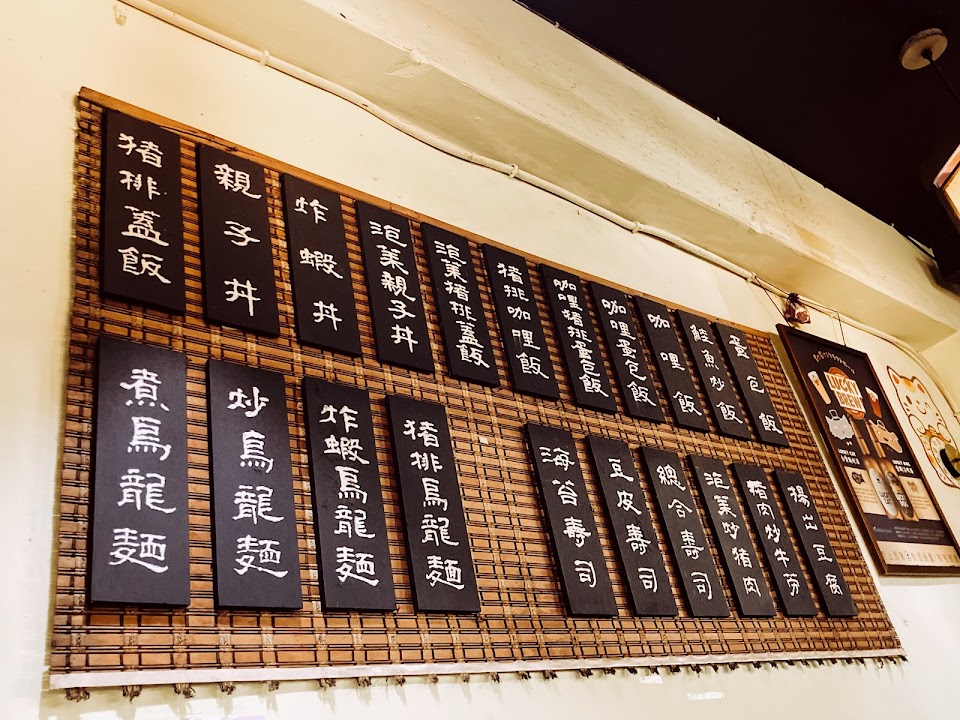 猪排蓋飯
親子丼
炸蝦丼
泡菜親子丼
泡菜猪排蓋飯
猪排咖哩飯
咖哩猪排蛋包飯
咖哩蛋包飯
咖哩飯
鮭魚炒飯
蛋包飯
煮烏龍麵
炒烏龍麵
炸蝦烏龍麵
猪排烏龍麵
海苔壽司
豆皮壽司
總合壽司
泡菜炒猪肉
猪肉炒牛芳
揚出豆腐
LUCKY
BREW